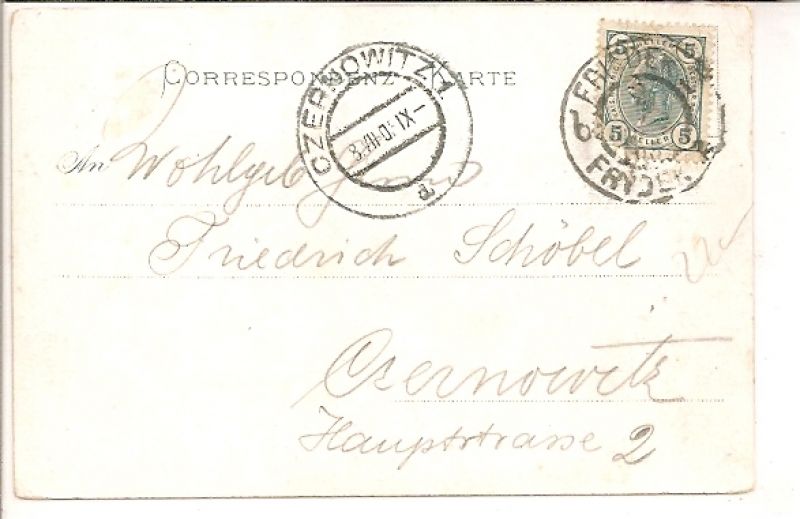 CORRESPONDENZ-KARTE
CZERNOWITZ 1
8·III·01·IX–
a
FRYDEK
5 5
5 5
An Wohlgeb
Friedrich Schöbel
Czernowitz
Hauptstrasse 2